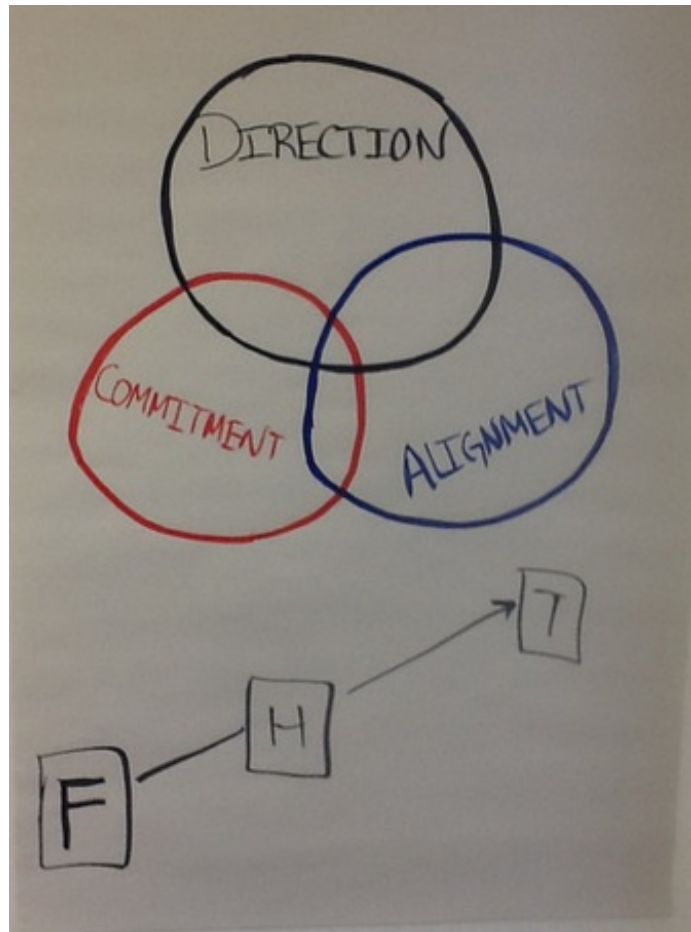 DIRECTION
COMMITMENT
ALIGNMENT
T
H
F